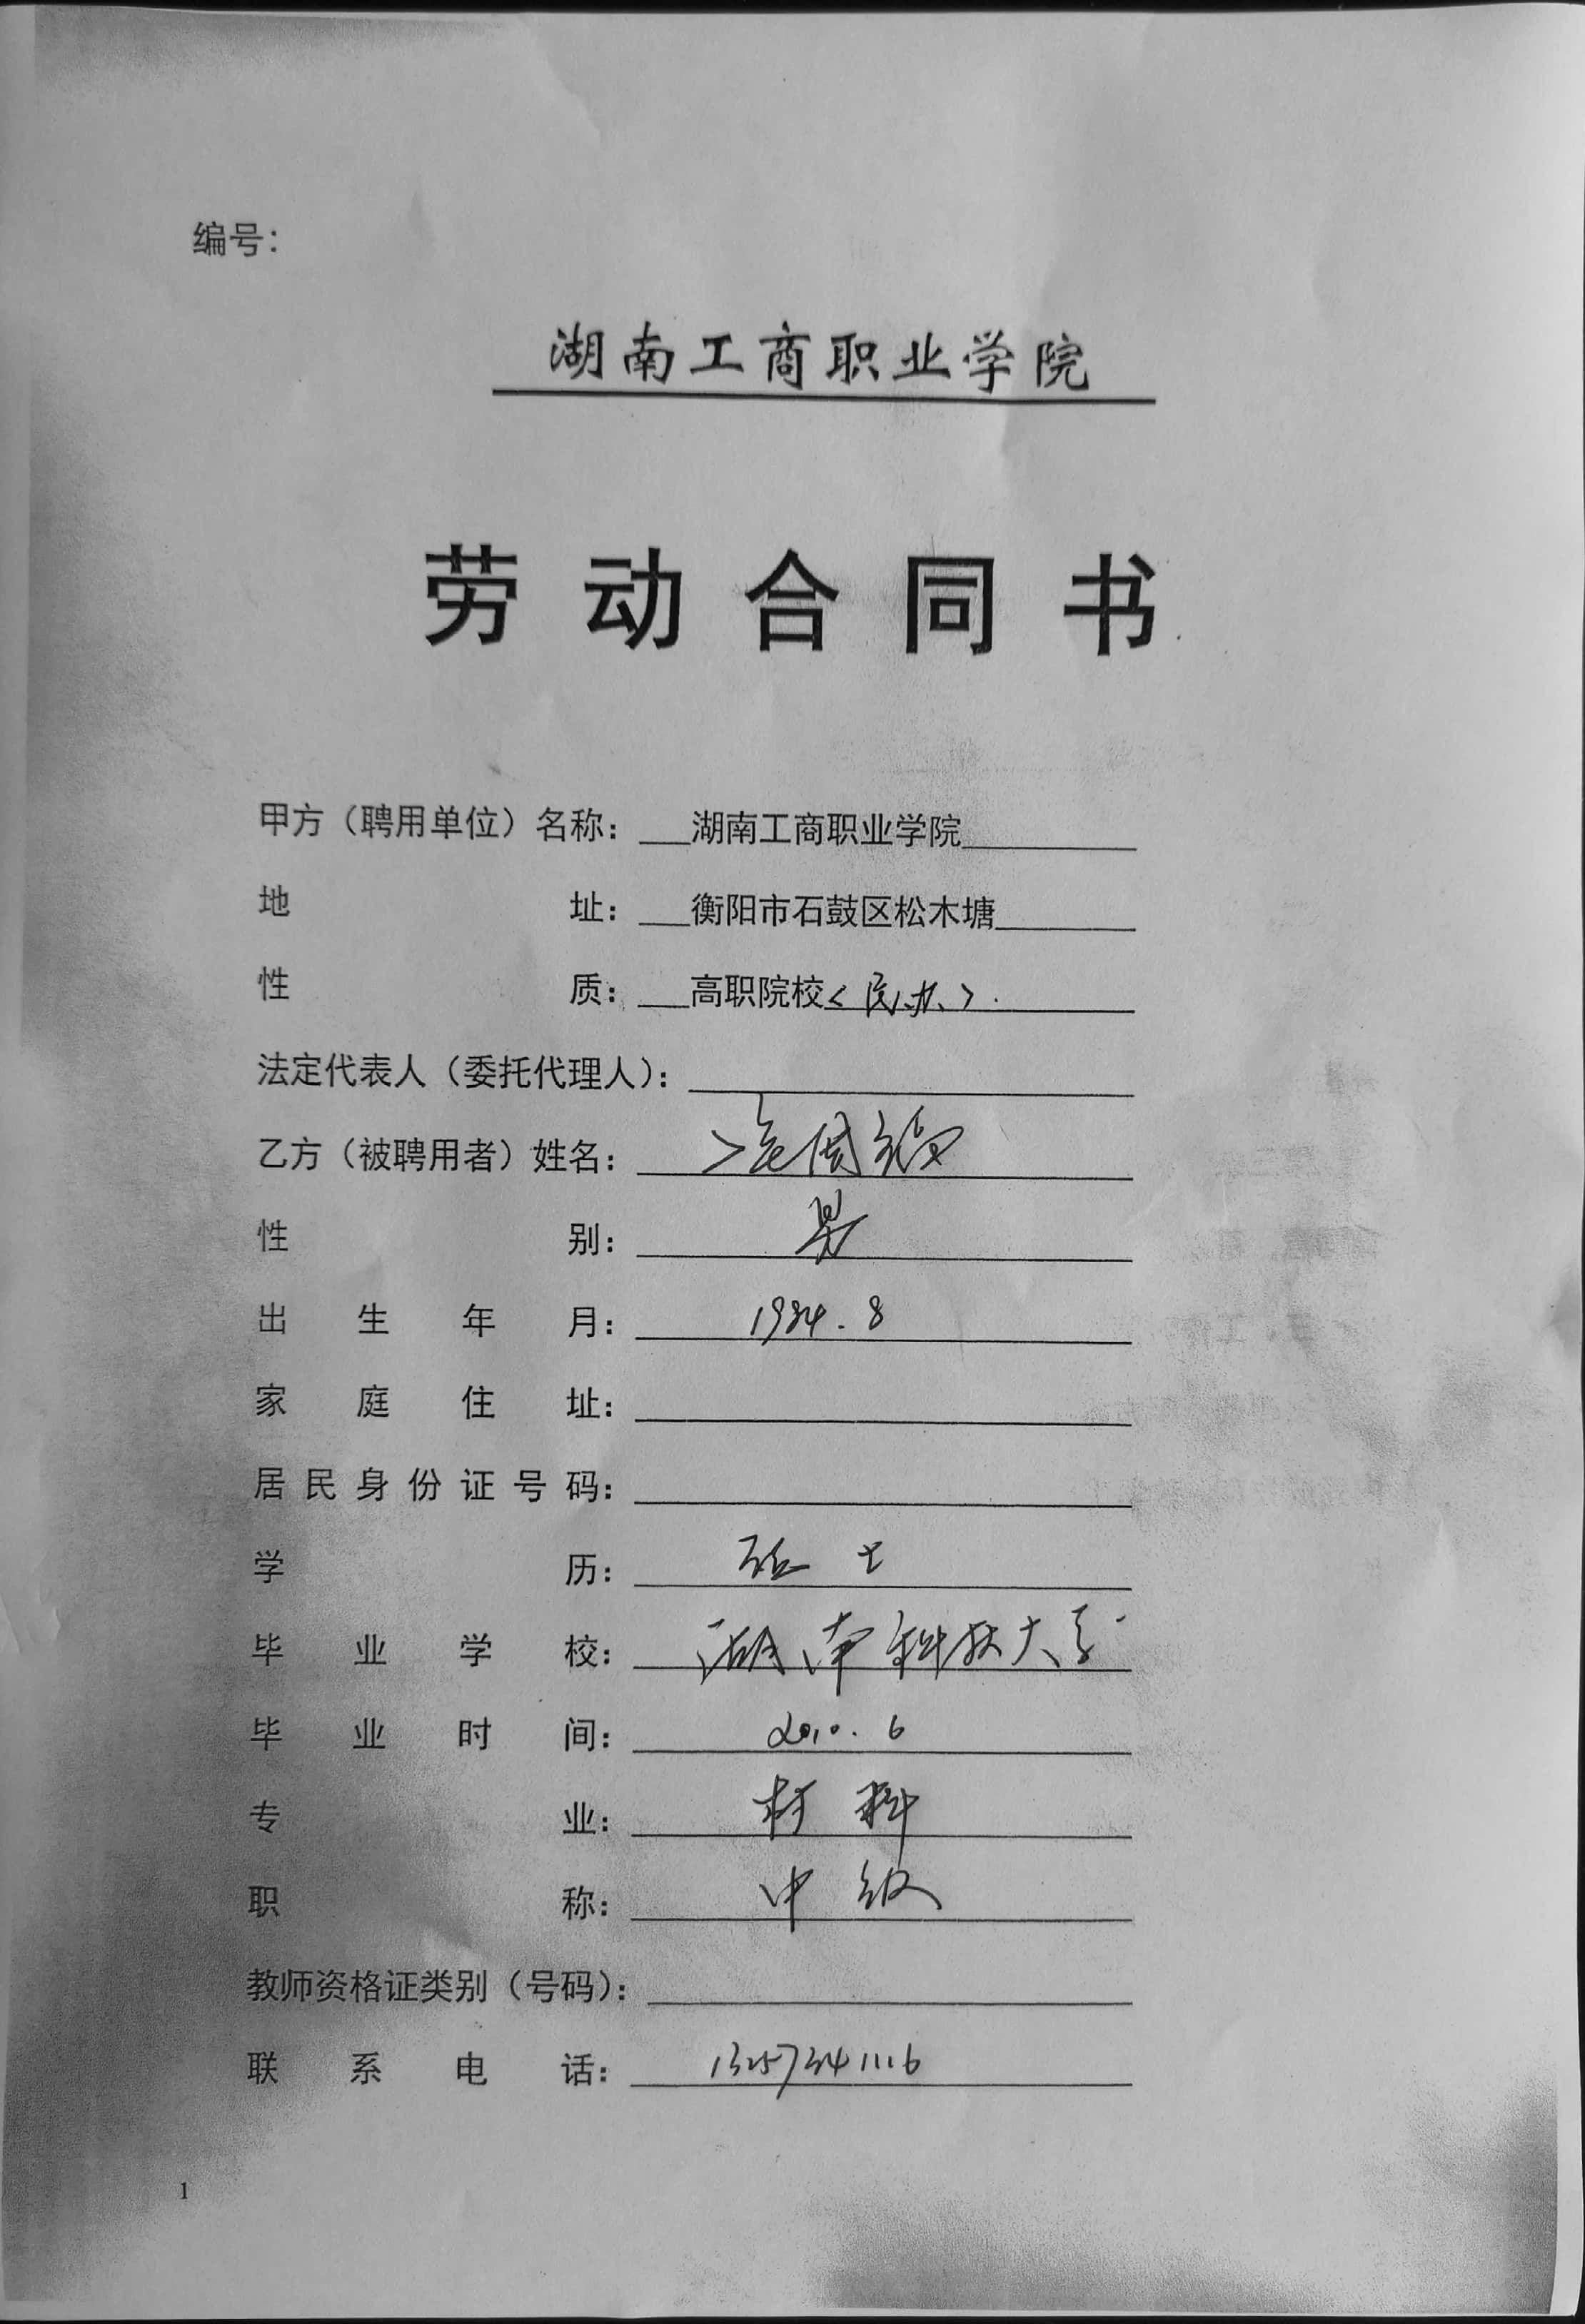 编号：
湖南工商职业学院
劳动合同书
甲方（聘用单位）名称： 湖南工商职业学院
地址： 衡阳市石鼓区松木塘
性质： 高职院校<民办>.
法定代表人（委托代理人）：
乙方（被聘用者）姓名：
性别： 男
出生年月： 1984.8
家庭住址：
居民身份证号码：
学历： 硕士
毕业学校： 湖南科技大学
毕业时间： 2010.6
专业： 材料
职称： 中级
教师资格证类别（号码）：
联系电话： 13257341116
1